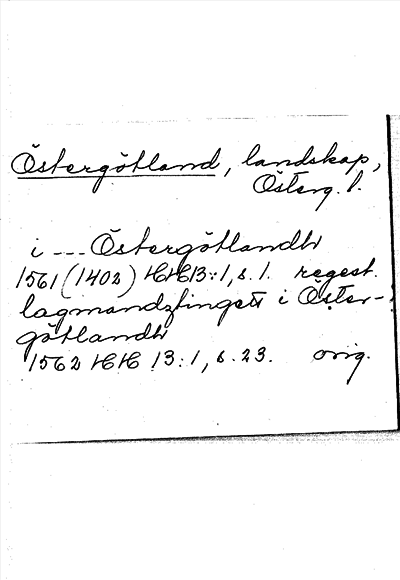 Östergötland, landskap,
Österg. l.
i --- Östergötlandh
1561 (1402) HH 13:1, s. 1. regest.
lagmandztingett i Öster-
götlandh
1562 HH 13:1, s. 23. orig.